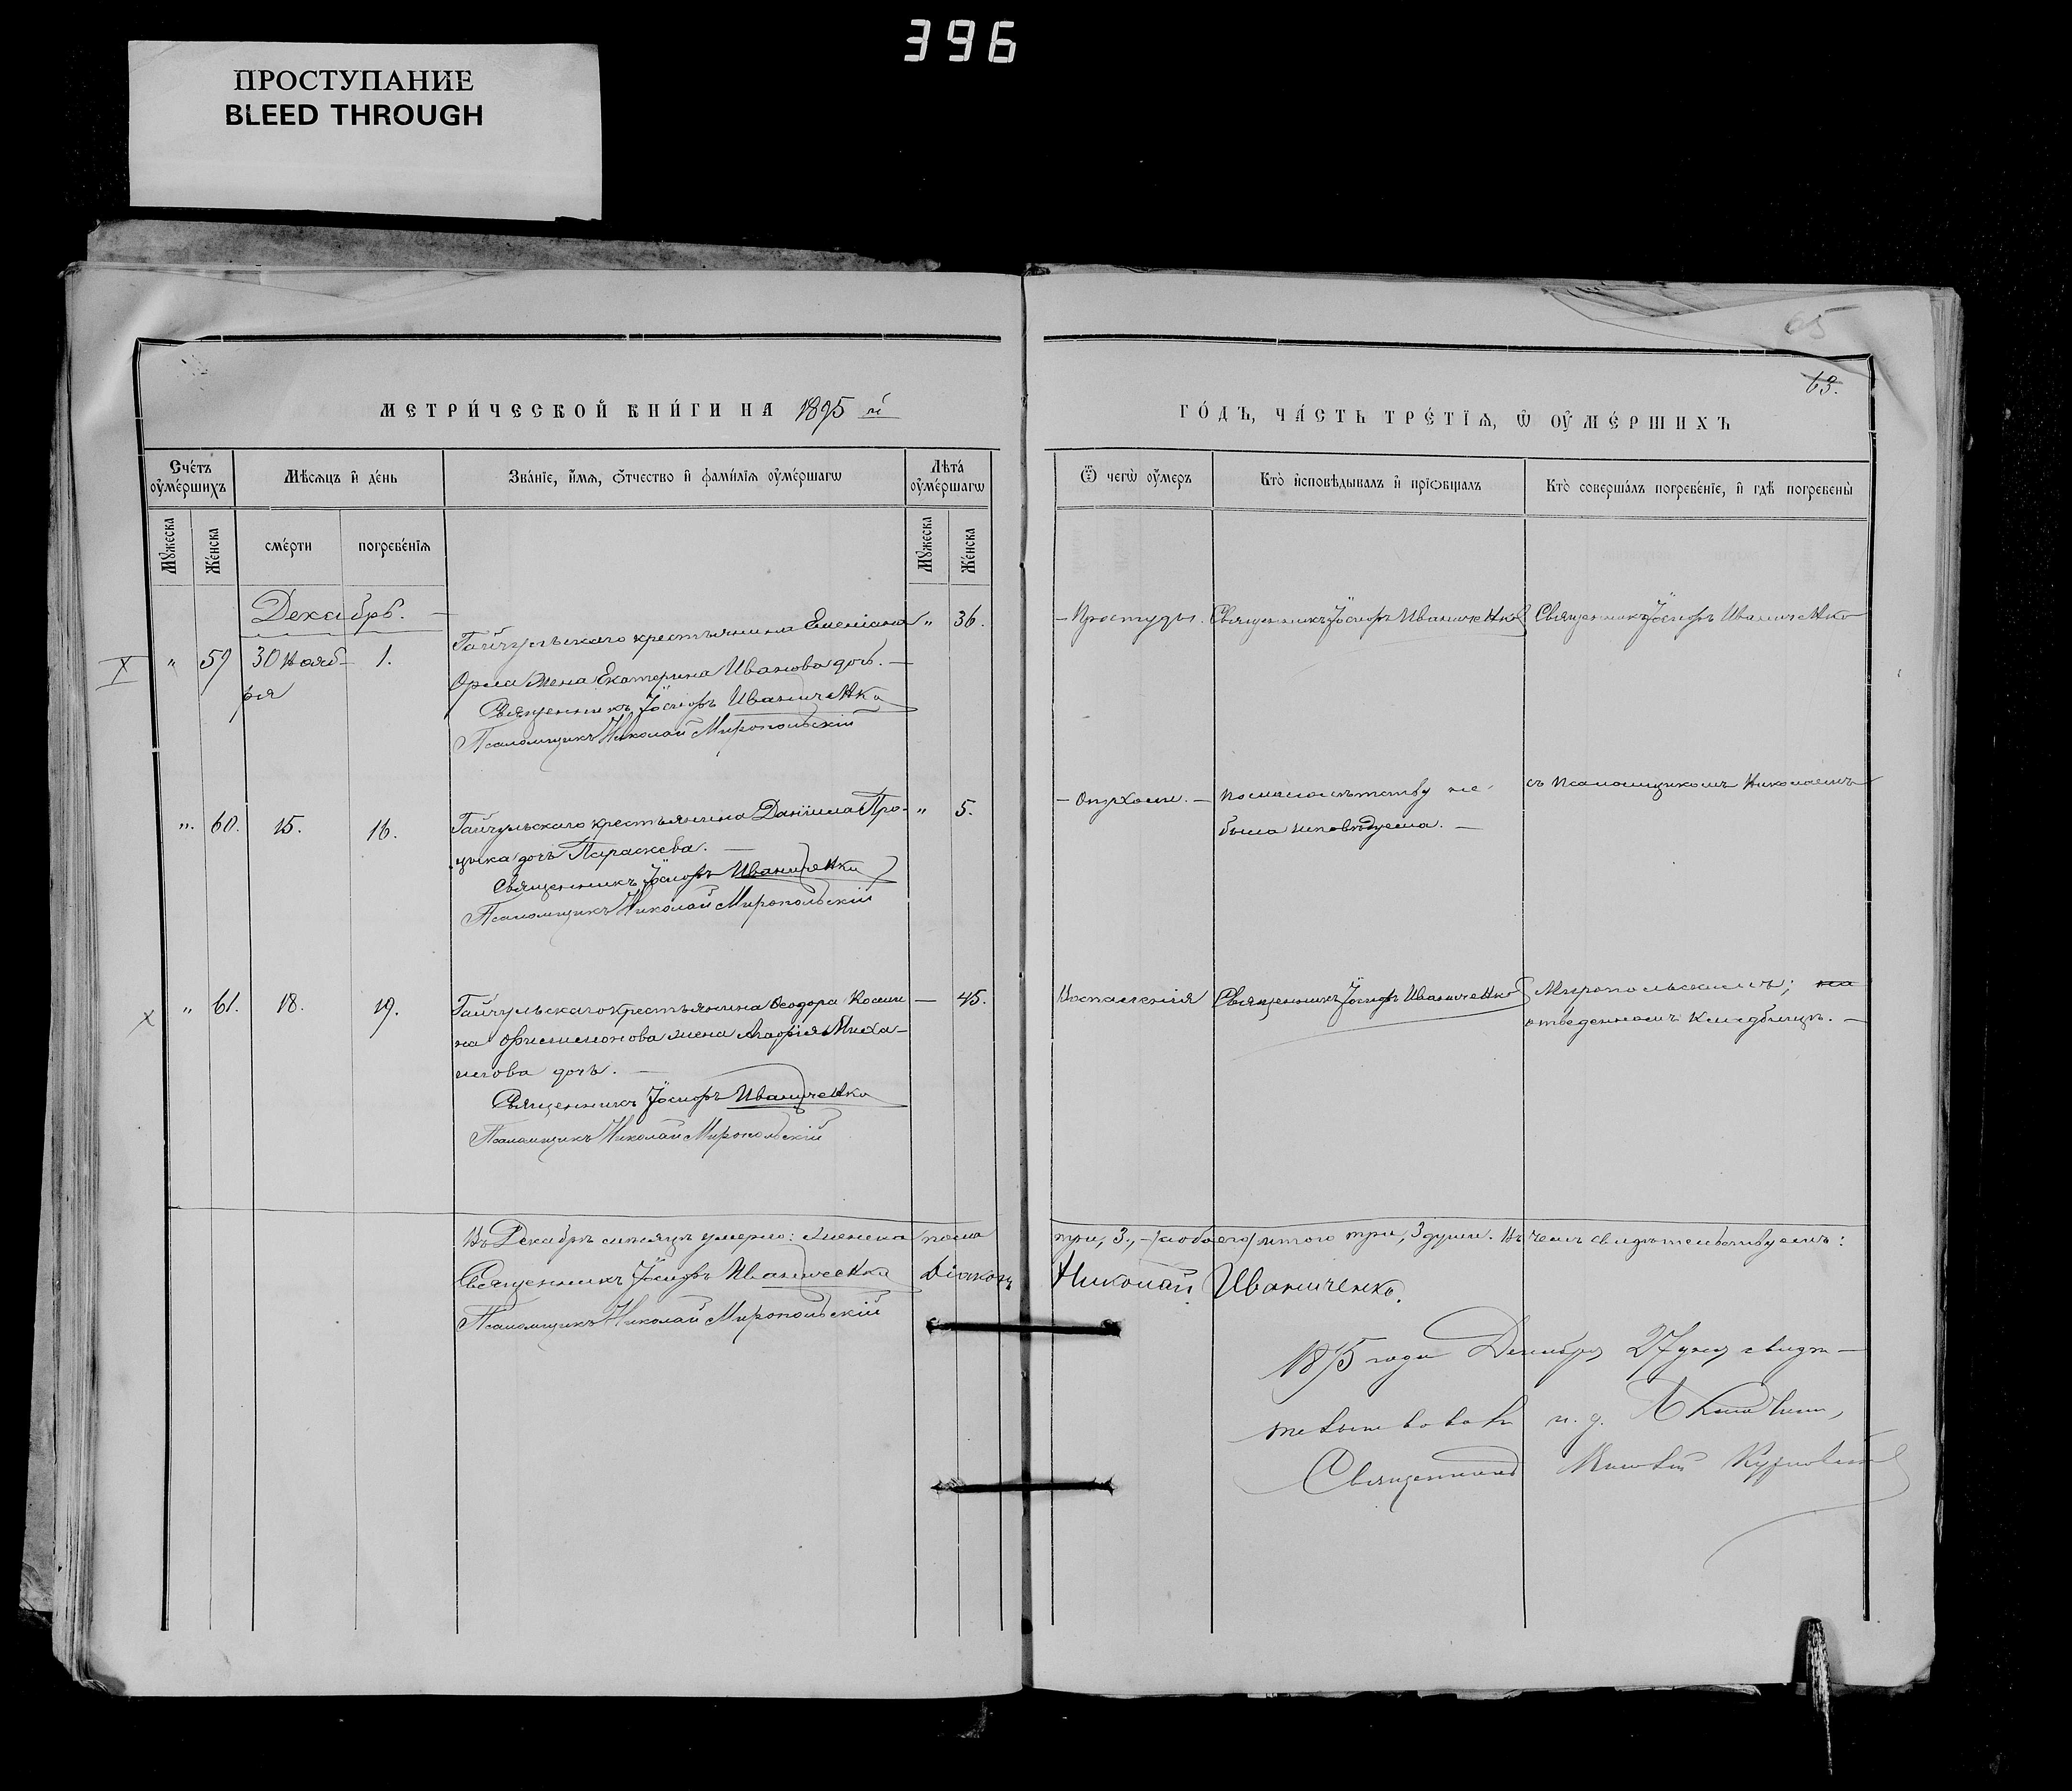 396
ПРОСТУПАНИЕ
BLEED THROUGH
65
63.
МЕТРИ́ЧЕСКОЙ КНИ́ГИ НА 1895 й
ГО́ДЪ, ЧА́СТЬ ТРЕ́ТІѦ, Ѡ҆ ОУ҆МЕ́РШИХЪ
Сче́тъ оу҆ме́ршихъ
Мѣ́сѧцъ и҆ де́нь
Зва́нїе, и҆́мѧ, ѻ҆́тчество и҆ фами́лїѧ оу҆ме́ршагѡ
Лѣта̀ оу҆ме́ршагѡ
Ѿ чегѡ̀ оу҆́меръ
Кто̀ и҆сповѣ́дывалъ и҆ прїѻбща́лъ
Кто̀ соверша́лъ погребе́нїе, и҆ гдѣ̀ погребены̀
Мꙋ́жеска
Же́нска
сме́рти
погребе́нїѧ
Мꙋ́жеска
Же́нска
Декабрь. —
" 59 30 Нояб- 1.
ря
Гайчульскаго крестьянина
Орла жена Екатерина Иванова дочь. —
Священникъ Іосифъ Иваниченко
Псаломщикъ Николай Миропольскій
" 36.
— Простуды.
Священникъ Іосифъ Иваниченко
Священникъ Іосифъ Иваниченко
". 60. 15. 16.
Гайчульскаго крестьянина Даніила Про-
цыка дочь Параскева. —
Священникъ Іосифъ Иваниченко
Псаломщикъ Николай Миропольскій
" 5.
— Опухоли. —
По малолѣтству не
была исповѣдуема. —
съ псаломщикомъ Николаемъ
" 61. 18. 19.
Гайчульскаго крестьянина Ѳеодора
на Филимонова жена Агафія Миха-
илова дочь. —
Священникъ Іосифъ Иваниченко
Псаломщикъ Николай Миропольскій
— 45.
Воспаленія
Священникъ Іосифъ Иваниченко
Миропольскимъ; на
отведенномъ кладбищѣ. —
Въ Декабрѣ мѣсяцѣ умерло: женска пола три, 3., – обоего итого три, 3 души. Въ чемъ свидѣтельствуемъ:
Священникъ Іосифъ Иваниченко Діаконъ Николай Иваниченко.
Псаломщикъ Николай Миропольскій
1895 года Декабря 27 дня свидѣ-
тельствовалъ и. д.
Священникъ